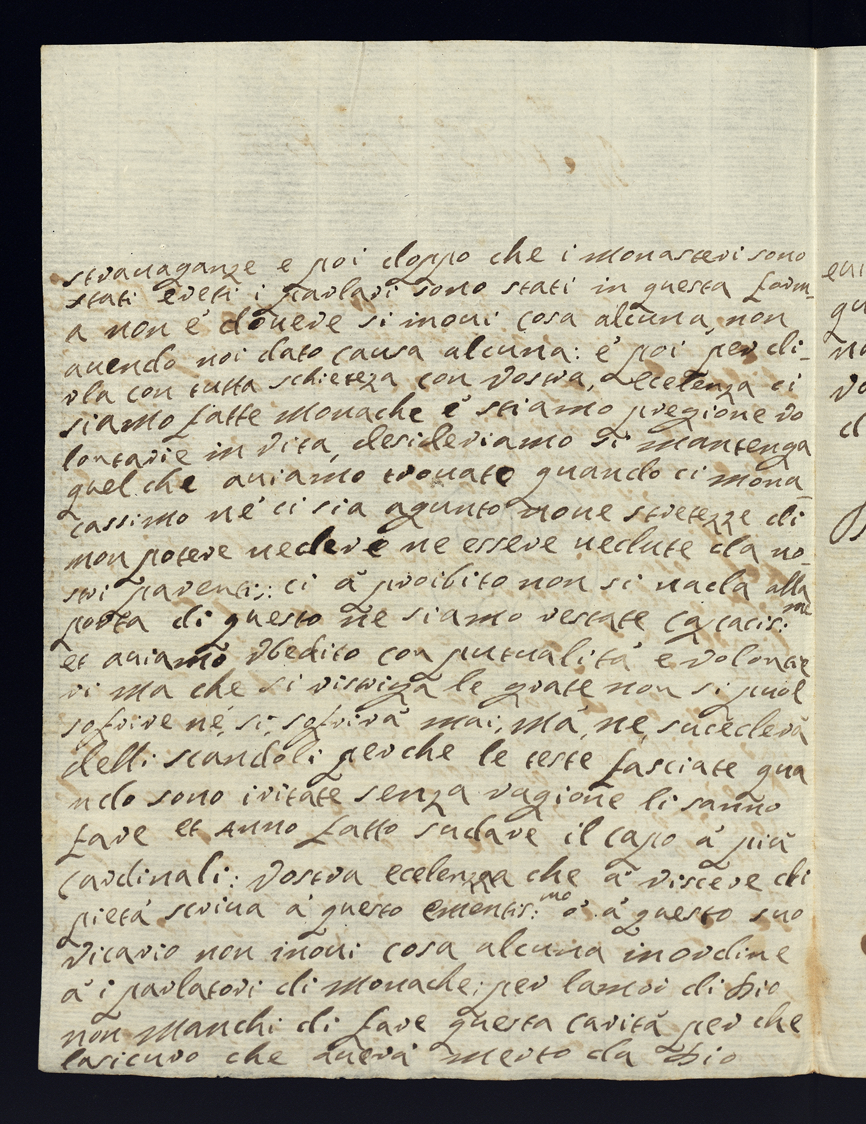 strauaganze e poi doppo che i monasteri sono
stati ereti i parlari sono stati in questa form-
a non e' douere si inoui cosa alcuna, non
auendo noi dato causa alcuna: e' poi per di-
rla con tutta schieteza con Vostra, ecelenza ci
siamo fatte monache e' stiamo pregione vo
lontarie in vita, desideriamo si mantenga
quel che auiamo trouato quando ci mona-
cassimo ne' ci sia agunto noue stretezze di
non potere uedere ne essere uedute da no-
stri parenti: ci a' proibito non si uada alla
porta di questo ne siamo restate capacis:me
et auiamo Vbedito con putualita' e volontie
ri ma che si ristriga le grate non si puol
sofrire ne, si, sofrira' mai, ma, ne, sucedera
delli scandoli perche le teste fasciate qua
ndo sono iritate senza ragione li sanno
fare et Anno fatto sudare il capo a' piu
Cardinali: Vostra ecelenza che a' viscere di
pieta' scriua a' questo ementis:mo o' a' questo suo
Vicario non inoui cosa alcuna inordine
a' i parlatori di monache; per lamor di Dio
non manchi di fare questa carita per che
lasicuro che auera' merto da Dio
eui
qu
no
vo
d